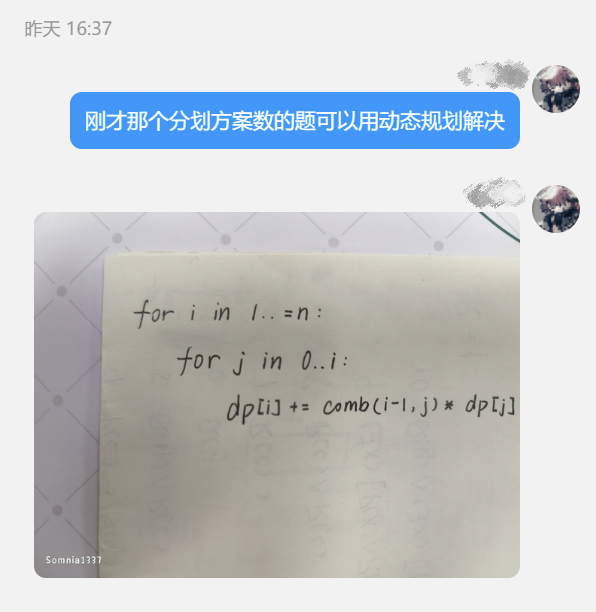 昨天 16:37
刚才那个分划方案数的题可以用动态规划解决
for i in 1..=n:
for j in 0..i:
dp[i] += comb(i-1,j)* dp[j]
Somnia1337